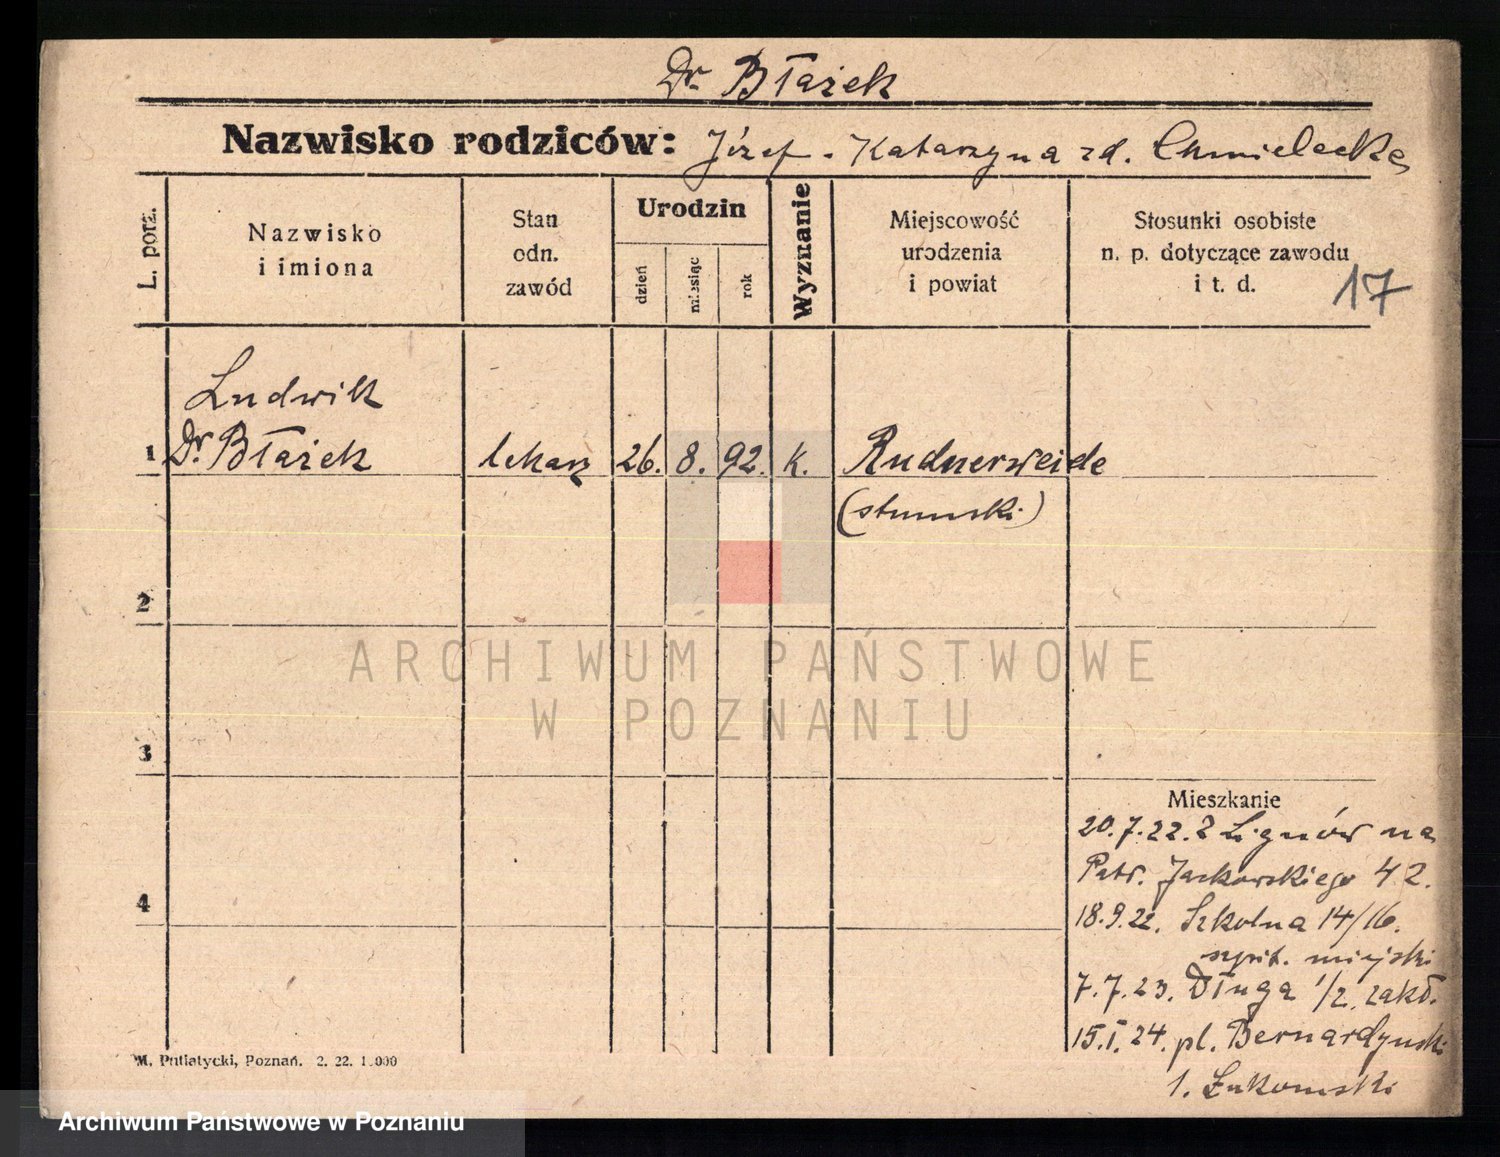 Dr. Błażek
Nazwisko rodziców: Józef - Katarzyna zd. Chmielecka
L. porz.
Nazwisko
i imiona
Stan
odn.
zawód
Urodzin
dzień
miesiąc
rok
Wyznanie
Miejscowość
urodzenia
i powiat
Stosunki osobiste
n. p. dotyczące zawodu
i t. d.
17
Ludwik
1 Dr. Błażek lekarz 26. 8. 92. k. Rudnerweide
(sztumski)
2
ARCHIWUM PAŃSTWOWE
W POZNANIU
3
Mieszkanie
20.7.22. z Lignów na
Patr. Jackowskiego 42.
4
18.9.22. Szkolna 14/16.
szpit. miejski
7.7.23. Długa 1/2. zakł.
15.I.24. pl. Bernardyński
1. Łukomski
M. Putiatycki, Poznań. 2. 22. 1.000
Archiwum Państwowe w Poznaniu